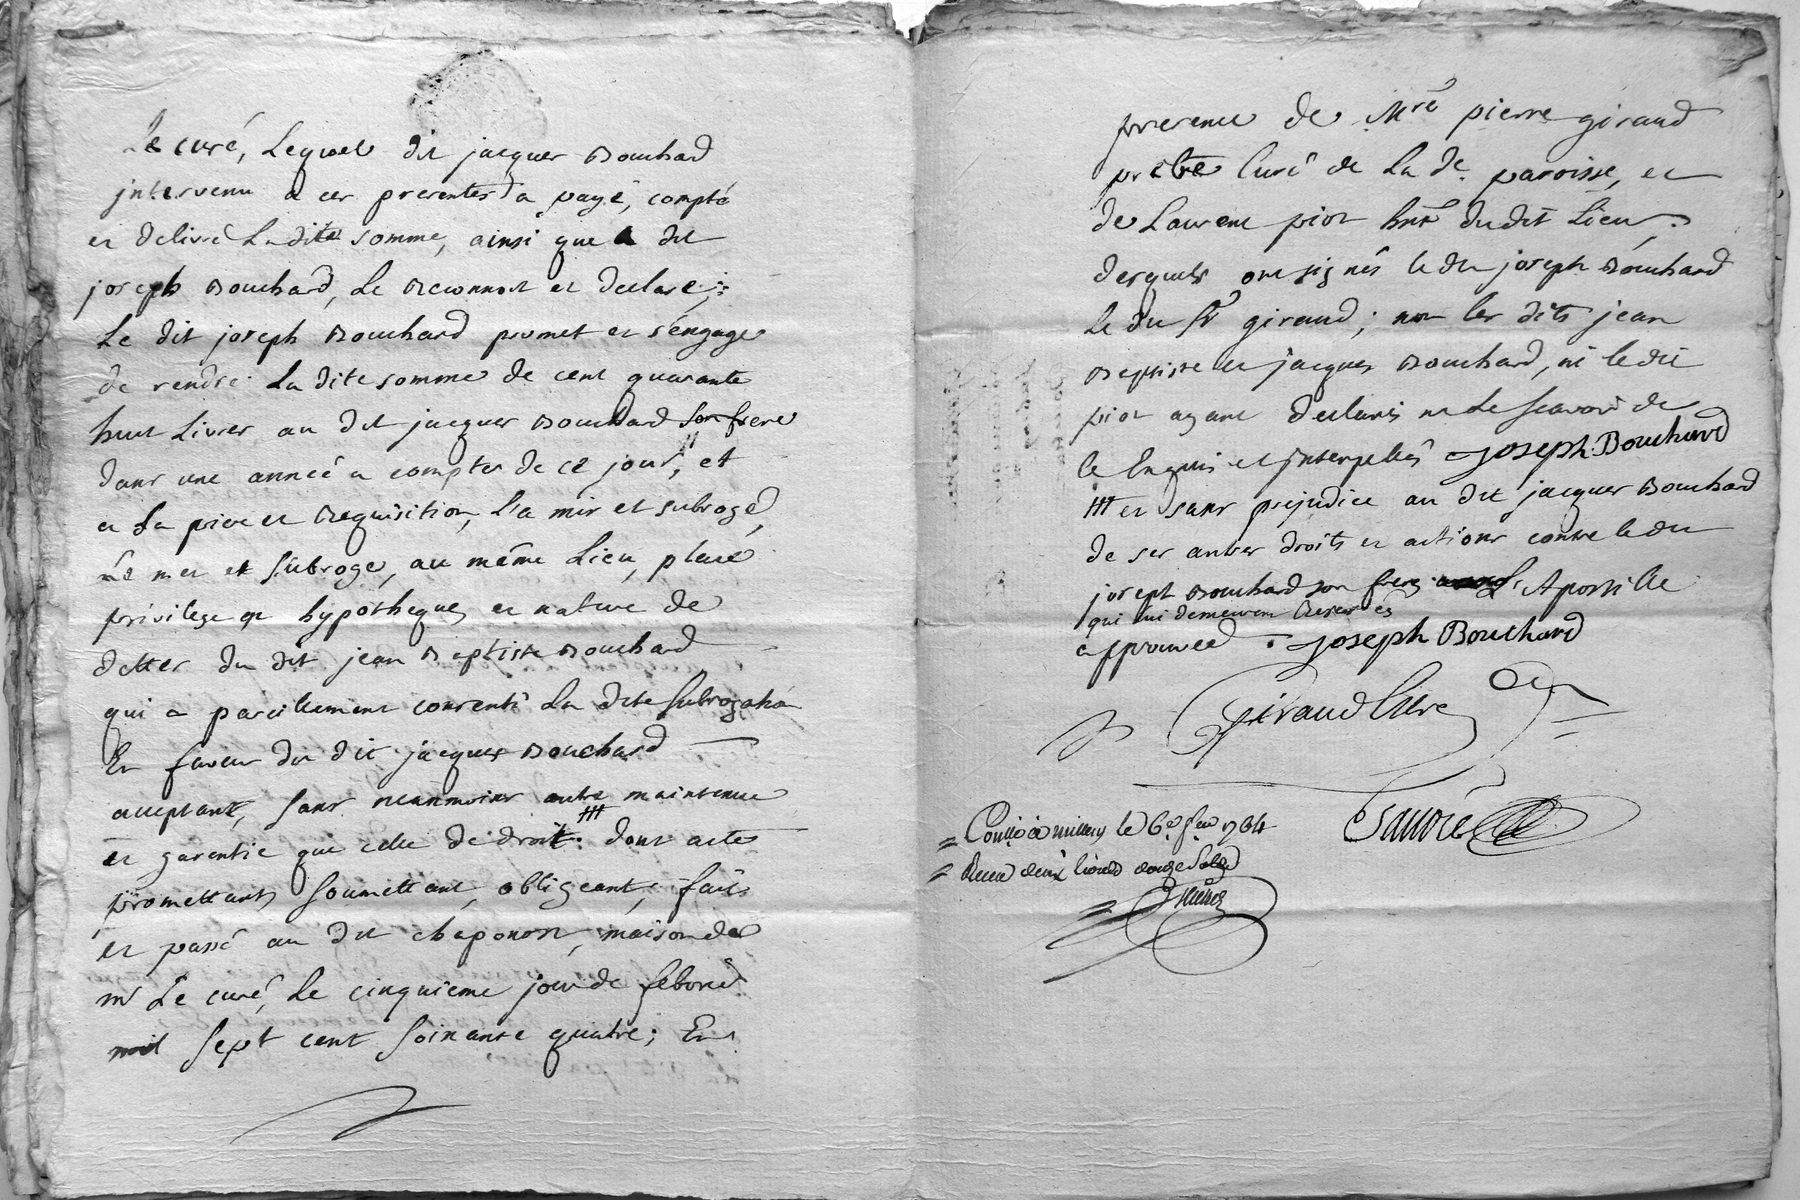 Le curé, Lequel dit jacques Bouchard
intervenu a ces presentes a payé, compté
et delivré Ladite somme, ainsi que le dit
joseph Bouchard, Le Reconnoit et declare;
Le dit joseph Bouchard promet et s'engage
de rendre La dite somme de cent quarante
huit Livres au dit jacques Bouchard son frere
dans une année a compter de ce jour, et
a La priere et Requisition, L'a mis et subrogé,
Le met et subroge, au même Lieu, place
privilege et hypotheques et nature de
dettes du dit jean Baptiste Bouchard
qui a pareillement consenti La dite subrogation
En faveur du dit jacques Bouchard
acceptant, sans neanmoins autre maintenue
et garentie que celle de droit. ttt dont acte
promettants soumettant, obligeant, fait
et passé au dit chaponost, maison de
mr Le curé, Le cinquieme jour de febvrier
mil sept cent soixante quatre; En
presence de Mre pierre giraud
prêtre Curé de La de. paroisse, et
de Laurent piot du dit Lieu,
desquels ont signés le dit joseph Bouchard
Le dit Sr giraud; non les dits jean
Baptiste et jacques Bouchard, ni le dit
piot ayant declarés ne Le sçavoir de
ce Enquis et interpellés Joseph Bouchard
ttt et sans prejudice au dit jacques Bouchard
de ses autres droits et actions contre le dit
joseph Bouchard son frere L'Apostille
qui lui demeurent Reservés
approuvée. Joseph Bouchard
Giraud Cure
Conllé a millery le 6e. fev 1764
Receu deux livres douze sols